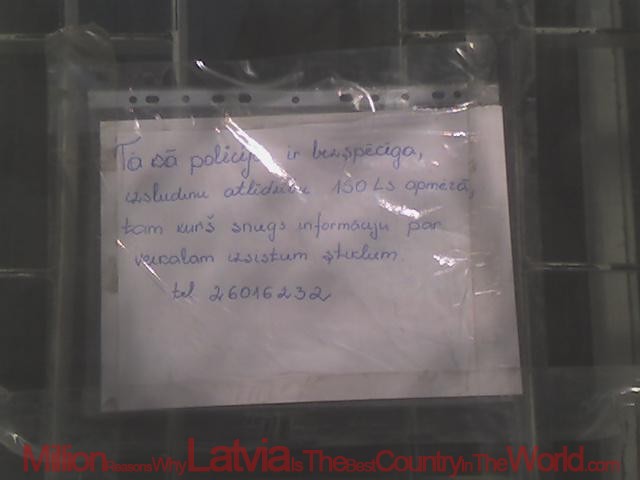 Tā kā policija ir bezspēcīga,
izsludinu atlīdzību 150 Ls apmērā,
tam kurš sniegs informāciju par
veikalam izsistum stiklum.
tel 26016232
Million Reasons Why Latvia Is The Best Country In The World.com